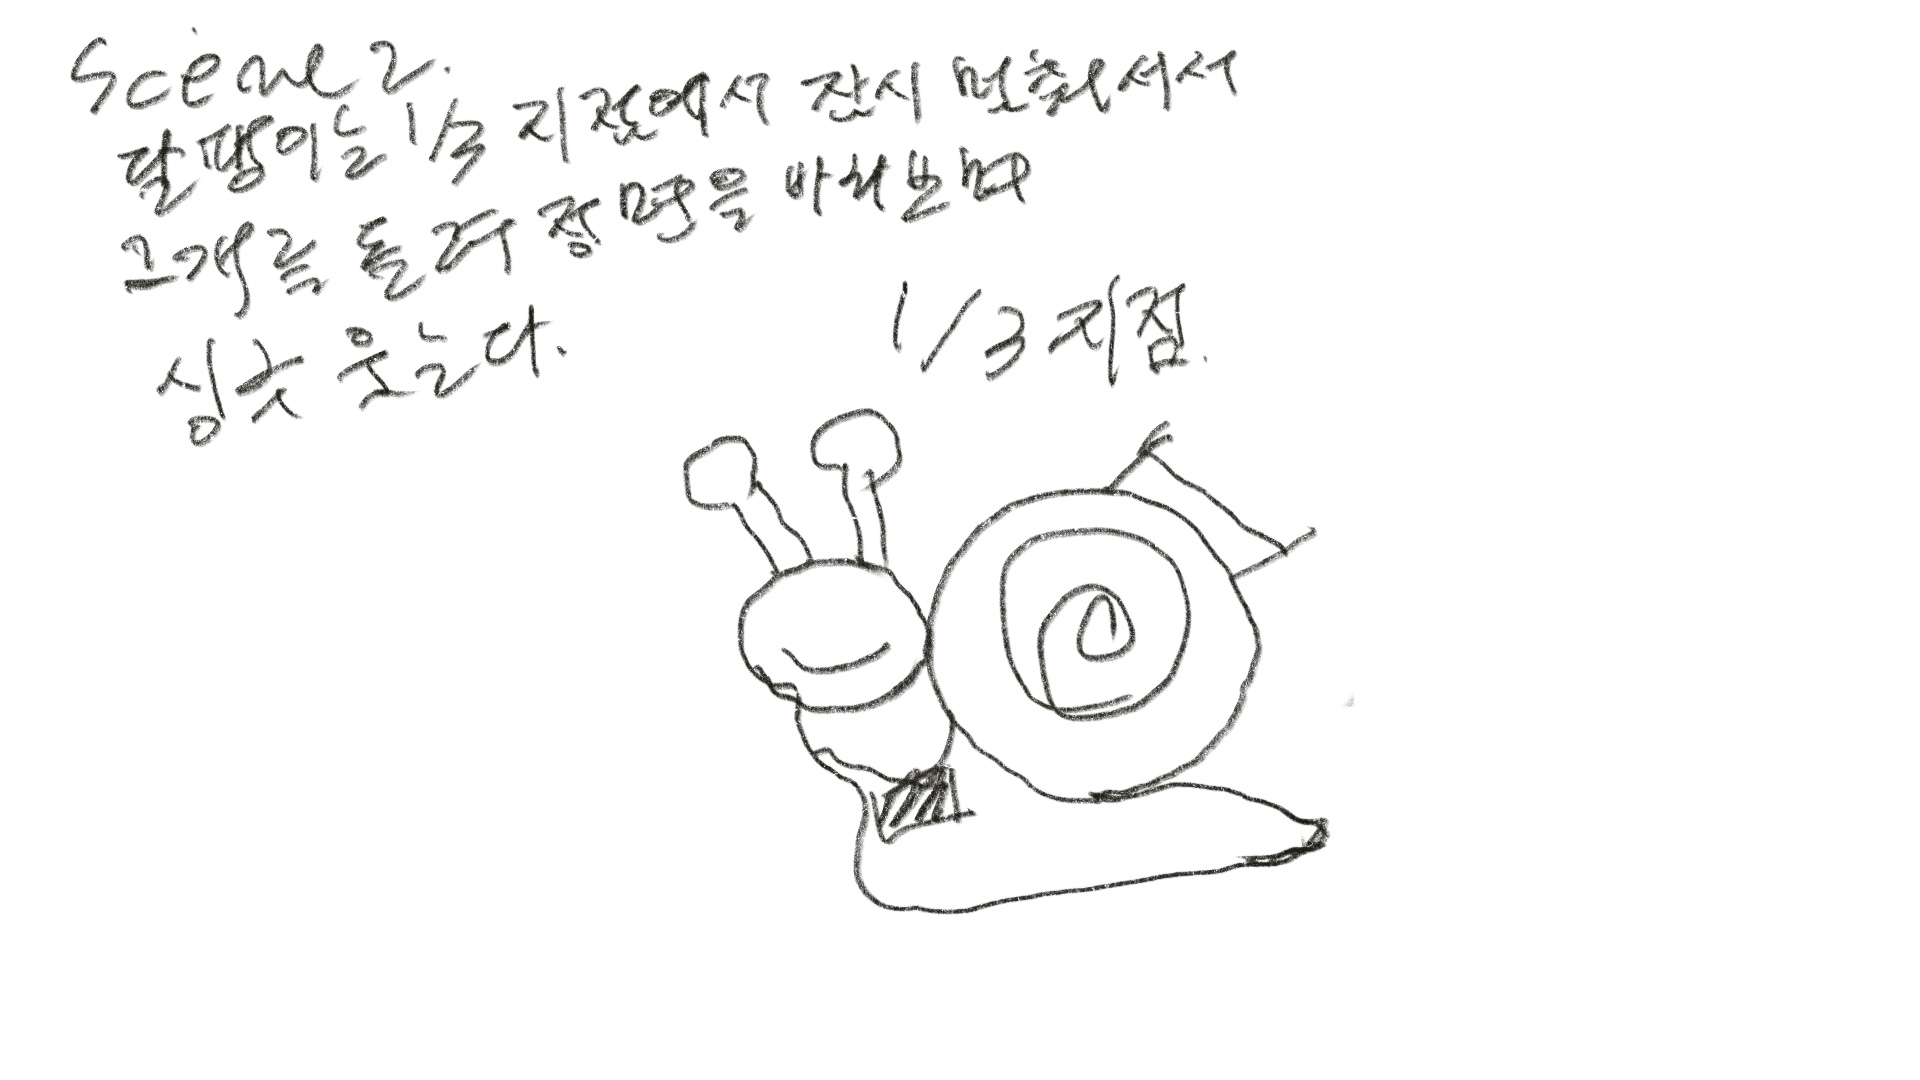 Scene 2.
달팽이는 1/3 지점에서 잠시 멈춰서서
고개를 돌려 정면을 바라보며
싱긋 웃는다.
1/3 지점.